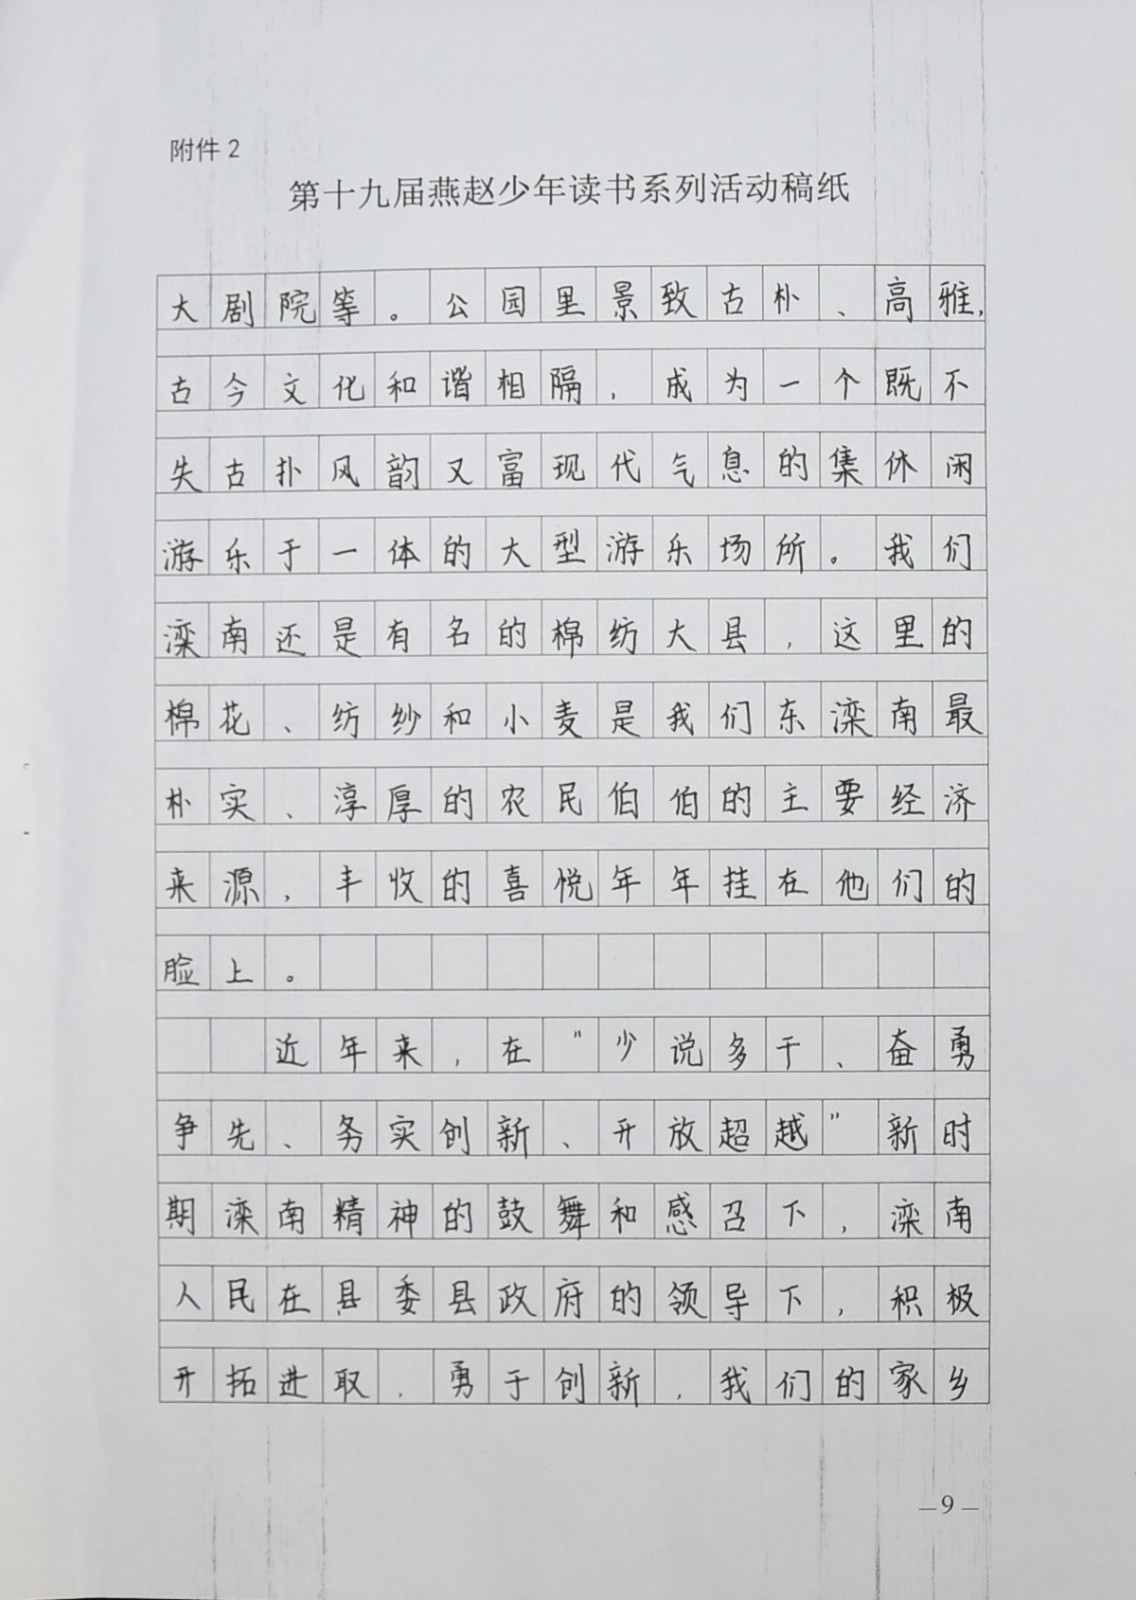 附件2
第十九届燕赵少年读书系列活动稿纸
大剧院等。公园里景致古朴、高雅,
古今文化和谐相隔，成为一个既不
失古扑风韵又富现代气息的集休闲
游乐于一体的大型游乐场所。我们
滦南还是有名的棉纺大县，这里的
棉花、纺纱和小麦是我们东滦南最
朴实、淳厚的农民伯伯的主要经济
来源，丰收的喜悦年年挂在他们的
脸上。
近年来，在"少说多于、奋勇
争先、务实创新、开放超越"新时
期滦南精神的鼓舞和感召下，滦南
人民在县委县政府的领导下，积极
开拓进取，勇于创新，我们的家乡
—9—